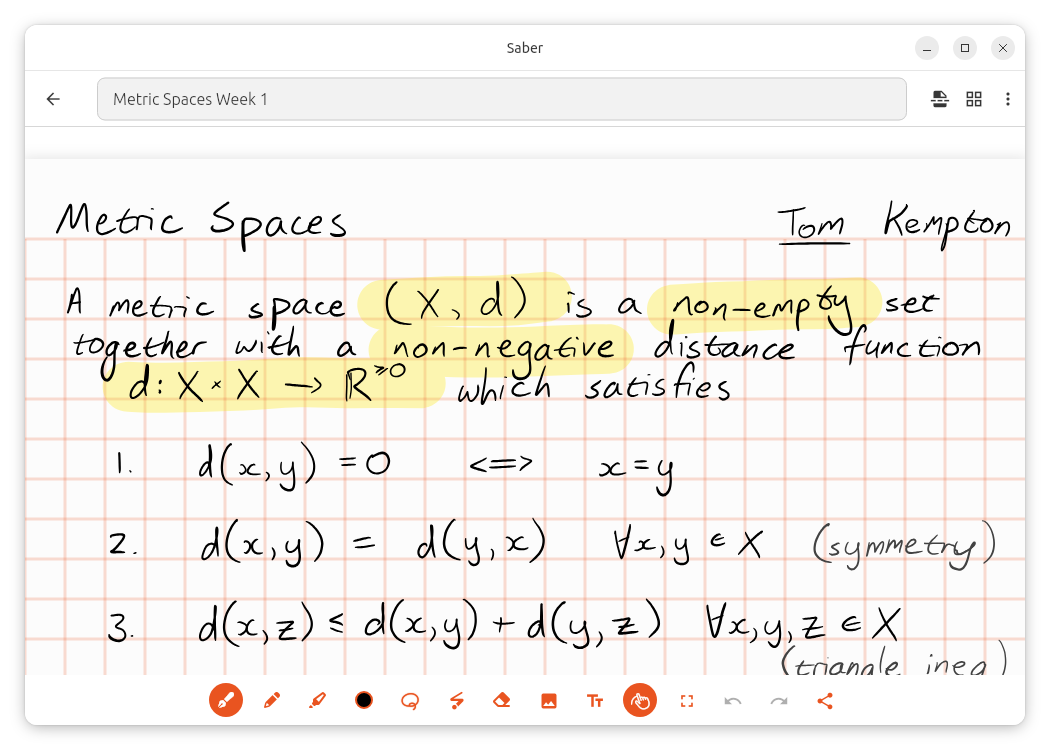 Saber
Metric Spaces Week 1
Metric Spaces Tom Kempton
A metric space (X, d) is a non-empty set
together with a non-negative distance function
d: X × X → ℝ^≥0 which satisfies
1. d(x,y) = 0 <=> x = y
2. d(x,y) = d(y,x) ∀x,y ∈ X (symmetry)
3. d(x,z) ≤ d(x,y) + d(y,z) ∀x,y,z ∈ X
(triangle ineq)
Tт